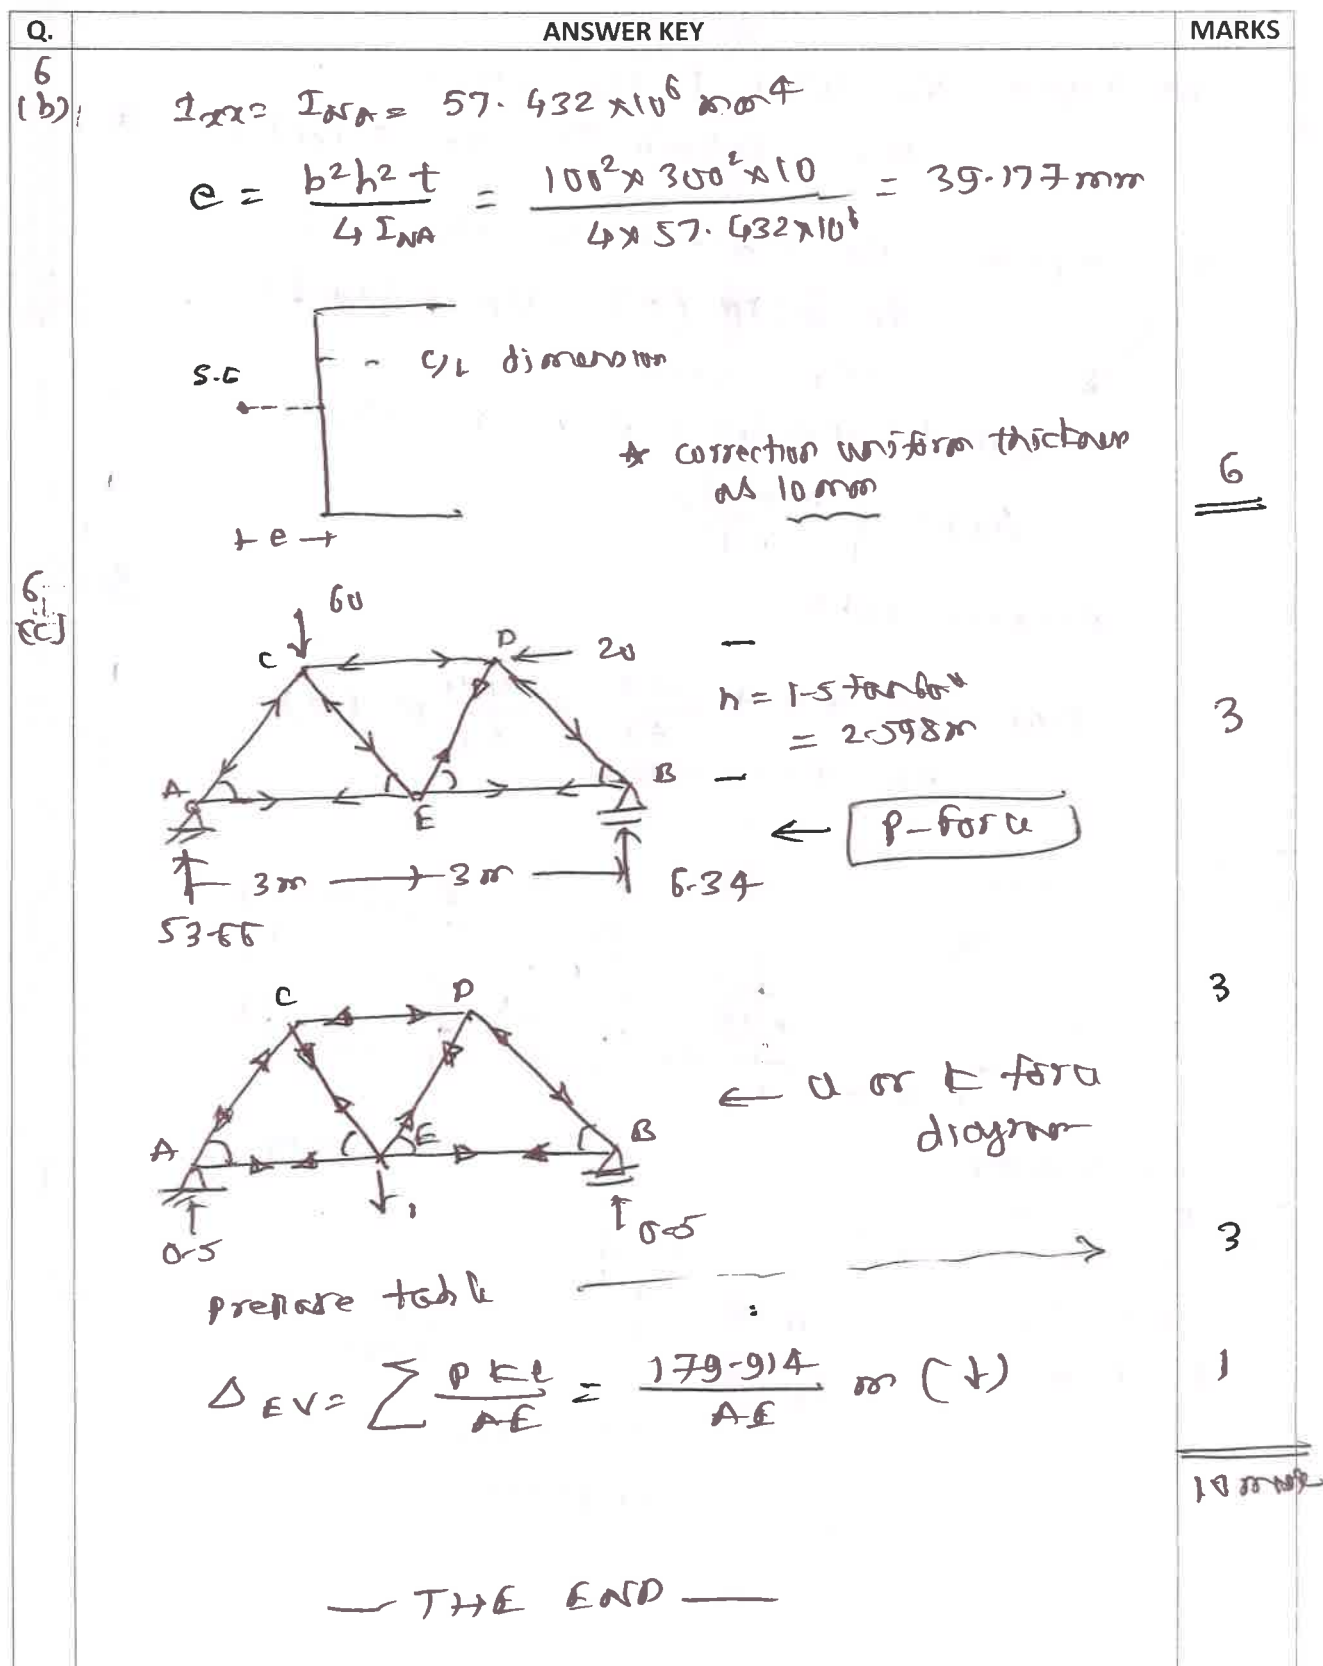 Q. ANSWER KEY MARKS
6
(b)
Ixx = INA = 57.432 x10^6 mm^4
e = b²h²t / 4 INA = 100² x 300² x 10 / 4 x 57.432 x10^6 = 39.177 mm
S.C
C/L dimension
* correction uniform thickness
as 10 mm
6
e
6
(c)
60
C D 20
h = 1.5 tan 60°
= 2.598m
3
A E B
P-force
3m 3m 6.34
53.66
C D
3
u or k force
diagram
A E B
1
0.5 0.5
3
prepare table
ΔEV = ∑ PKl / AE = 179.914 / AE m (↓)
1
10 mark
— THE END —